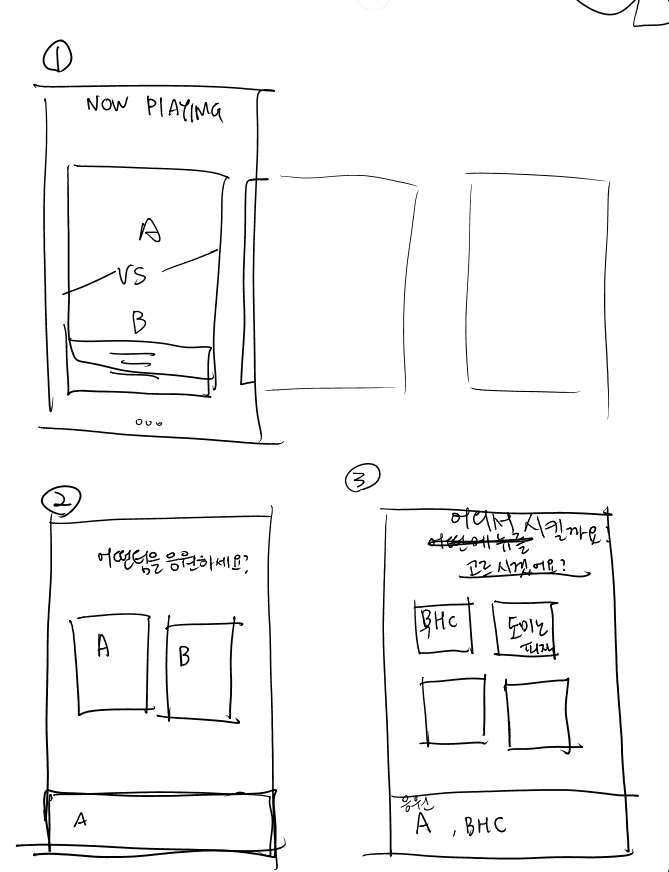 ①
NOW PLAYING
A
VS
B
②
어떤팀을 응원하세요?
A
B
A
③
어디서 시킬까요?
고르시겠어요?
BHC
도미노
피자
응원
A , BHC